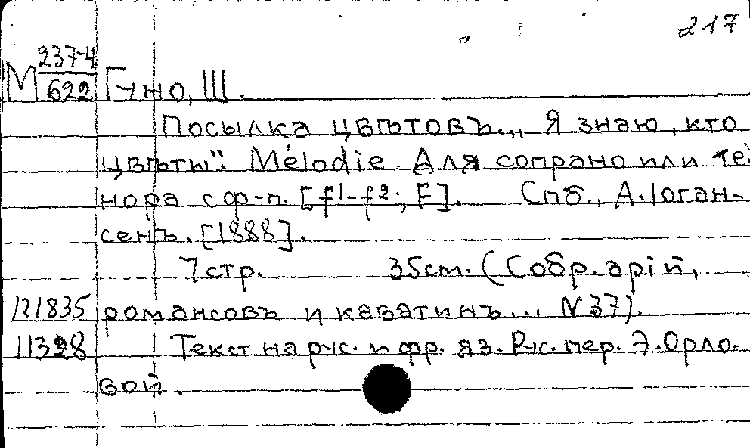 217
М 2374/622 Гуно, Ш.
Посылка цвѣтовъ... "Я знаю, кто
цвѣты". Mélodie. Для сопрано или те-
нора с ф-п. [f¹-f²; F]. Спб., А. Иоган-
сенъ. [1888].
7 стр. 35 см. (Собр. арій,
121835 романсовъ и каватинъ... N 37).
11328 Текст на рус. и фр. яз. Рус. пер. Э. Орло-
вой.